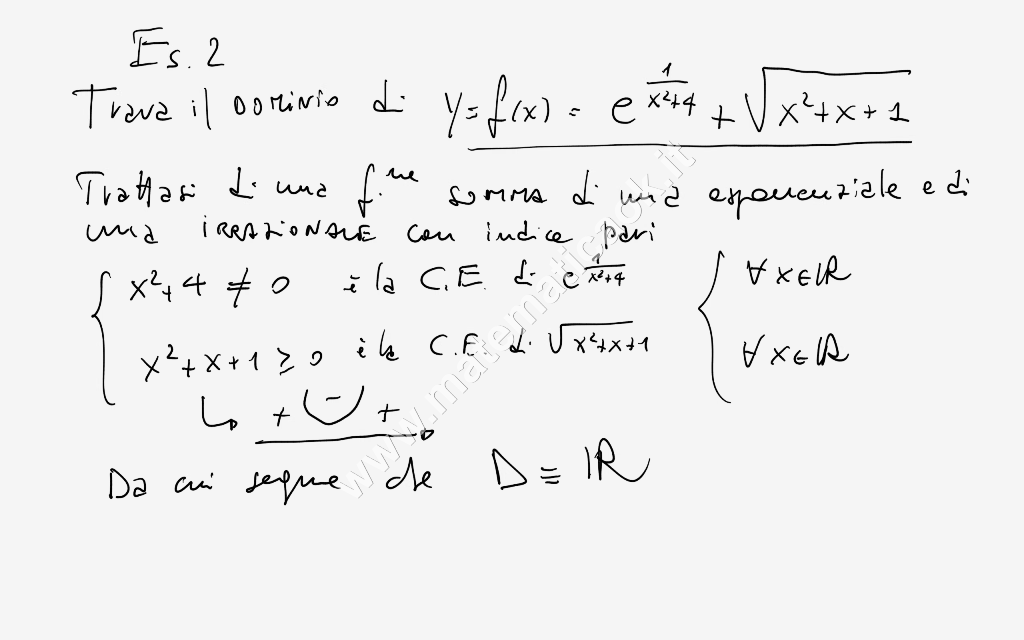 Es. 2
Trova il DOMINIO di y = f(x) = e^{1/(x²+4)} + √(x²+x+1)
Trattasi di una f.ne SOMMA di una esponenziale e di
una IRRAZIONALE con indice pari
{ x²+4 ≠ 0 è la C.E. di e^{1/(x²+4)} { ∀ x∈ℝ
x²+x+1 ≥ 0 è la C.E. di √(x²+x+1) ∀ x∈ℝ
↳ + − +
Da cui segue che D ≡ ℝ
www.matematicaok.it